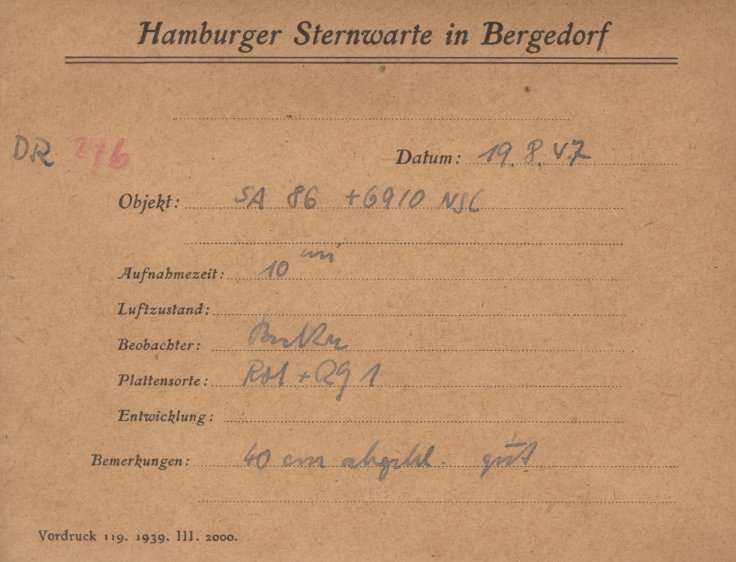 Hamburger Sternwarte in Bergedorf
DR 216
Datum: 19.8.47
Objekt: SA 86 +6910 NGC
Aufnahmezeit: 10 min
Luftzustand:
Beobachter:
Plattensorte: Rot + RG 1
Entwicklung:
Bemerkungen: 40 cm abgebl. gut
Vordruck 119. 1939. III. 2000.